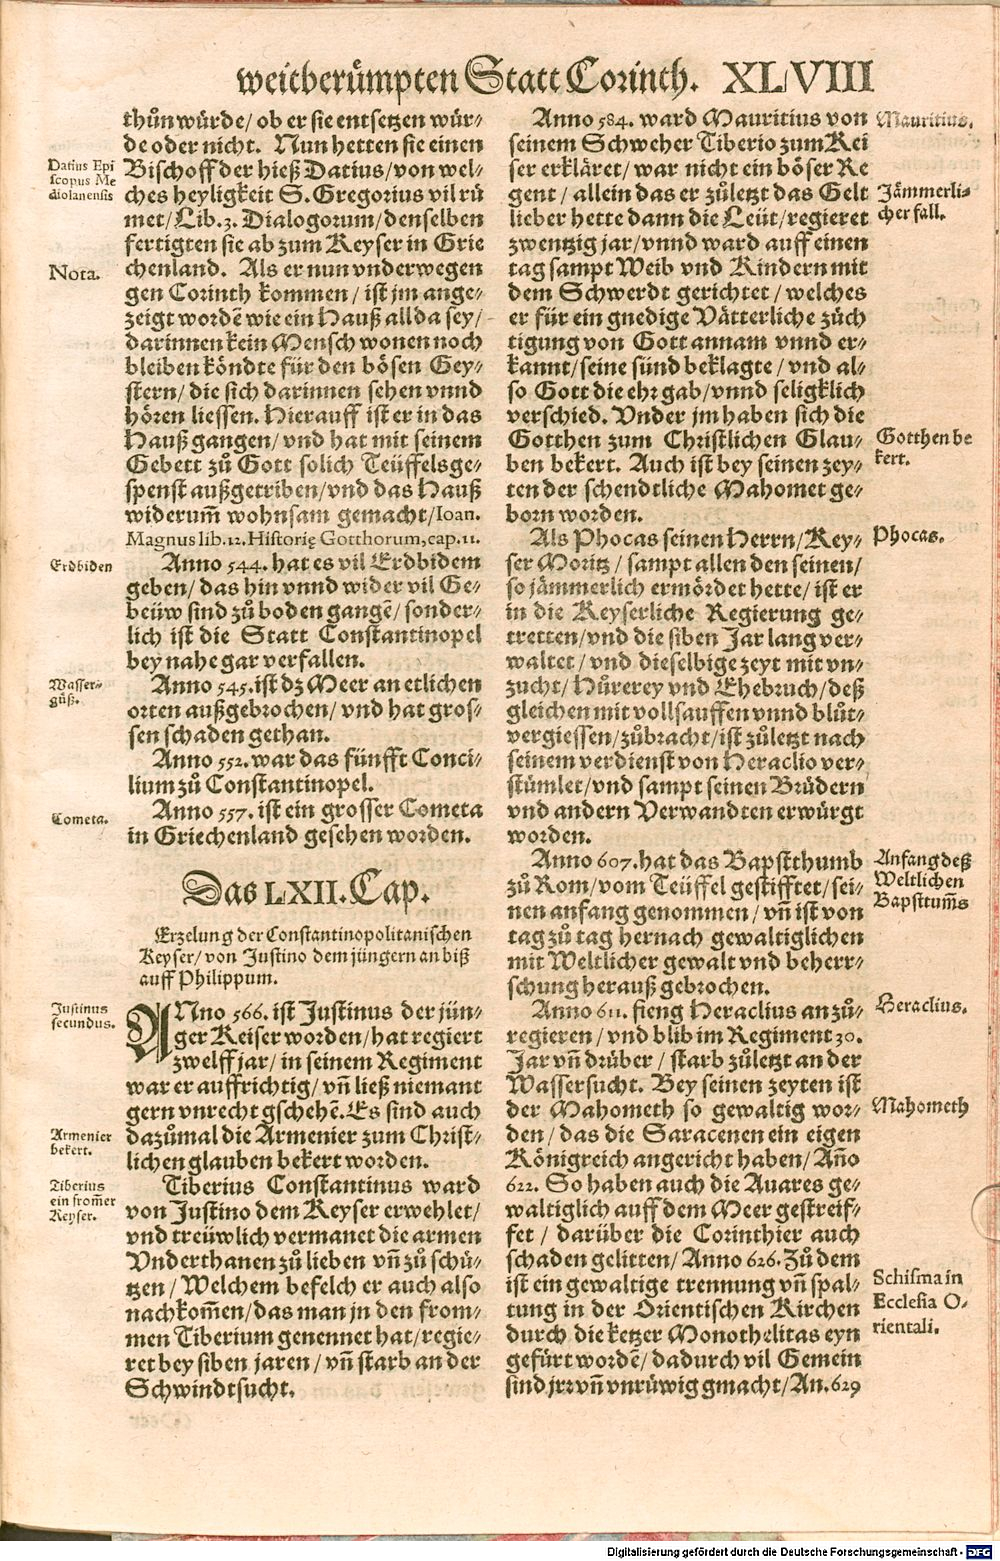 weitberůmpten Statt Corinth. XLVIII
thůn würde/ ob er sie entsetzen wür⸗
de oder nicht. Nun hetten sie einen
Datius Epi
scopus Me
diolanensis
Bischoff der hieß Datius/ von wel⸗
ches heyligkeit S. Gregorius vil rů
met/ Lib. 3. Dialogorum/ denselben
fertigten sie ab zum Keyser in Grie
Nota.
chenland. Als er nun vnderwegen
gen Corinth kommen/ ist jm ange⸗
zeigt wordẽ wie ein Hauß allda sey/
darinnen kein Mensch wonen noch
bleiben köndte für den bösen Gey⸗
stern/ die sich darinnen sehen vnnd
hören liessen. Hierauff ist er in das
Hauß gangen/ vnd hat mit seinem
Gebett zů Gott solich Teüffelsge⸗
spenst außgetriben/ vnd das Hauß
widerum̃ wohnsam gemacht/ Ioan.
Magnus lib. 12. Historię Gotthorum, cap. 11.
Erdbiden
Anno 544. hat es vil Erdbidem
geben/ das hin vnnd wider vil Ge⸗
beüw sind zů boden gangẽ/ sonder⸗
lich ist die Statt Constantinopel
bey nahe gar verfallen.
Wasser⸗
güß.
Anno 545. ist dz Meer an etlichen
orten außgebrochen/ vnd hat gros⸗
sen schaden gethan.
Anno 552. war das fünfft Conci⸗
lium zů Constantinopel.
Cometa.
Anno 557. ist ein grosser Cometa
in Griechenland gesehen worden.
Das LXII. Cap.
Erzelung der Constantinopolitanischen
Keyser/ von Justino dem jüngern an biß
auff Philippum.
Justinus
secundus.
ANno 566. ist Justinus der jün⸗
ger Keiser worden/ hat regiert
zwelff jar/ in seinem Regiment
war er auffrichtig/ vñ ließ niemant
gern vnrecht gschehẽ. Es sind auch
Armenier
bekert.
dazůmal die Armenier zum Christ⸗
lichen glauben bekert worden.
Tiberius
ein from̃er
Keyser.
Tiberius Constantinus ward
von Justino dem Keyser erwehlet/
vnd treüwlich vermanet die armen
Vnderthanen zů lieben vñ zů schü⸗
tzen/ Welchem befelch er auch also
nachkom̃en/ das man jn den from⸗
men Tiberium genennet hat/ regie⸗
ret bey siben jaren/ vñ starb an der
Schwindtsucht.
Mauritius.
Anno 584. ward Mauritius von
seinem Schweher Tiberio zum Kei
ser erkläret/ war nicht ein böser Re
Jämmerli⸗
cher fall.
gent/ allein das er zůletzt das Gelt
lieber hette dann die Leüt/ regieret
zwentzig jar/ vnnd ward auff einen
tag sampt Weib vnd Kindern mit
dem Schwerdt gerichtet/ welches
er für ein gnedige Vätterliche züch
tigung von Gott annam vnnd er⸗
kannt/ seine sünd beklagte/ vnd al⸗
so Gott die ehr gab/ vnnd seligklich
verschied. Vnder jm haben sich die
Gotthen be
kert.
Gotthen zum Christlichen Glau⸗
ben bekert. Auch ist bey seinen zey⸗
ten der schendtliche Mahomet ge⸗
born worden.
Phocas.
Als Phocas seinen Herrn/ Key⸗
ser Moritz/ sampt allen den seinen/
so jämmerlich ermördet hette/ ist er
in die Keyserliche Regierung ge⸗
tretten/ vnd die siben Jar lang ver⸗
waltet/ vnd dieselbige zeyt mit vn⸗
zucht/ Hůrerey vnd Ehebruch/ deß
gleichen mit vollsauffen vnnd blůt⸗
vergiessen/ zůbracht/ ist zůletzt nach
seinem verdienst von Heraclio ver⸗
stümlet/ vnd sampt seinen Brüdern
vnd andern Verwandten erwürgt
worden.
Anfang deß
Weltlichen
Bapsttum̃s
Anno 607. hat das Bapstthumb
zů Rom/ vom Teüffel gestifftet/ sei⸗
nen anfang genommen/ vñ ist von
tag zů tag hernach gewaltiglichen
mit Weltlicher gewalt vnd beherr⸗
schung herauß gebrochen.
Heraclius.
Anno 611. fieng Heraclius an zů⸗
regieren/ vnd blib im Regiment 30.
Jar vñ drüber/ starb zůletzt an der
Wassersucht. Bey seinen zeyten ist
Mahometh
der Mahometh so gewaltig wor⸗
den/ das die Saracenen ein eigen
Königreich angericht haben/ Año
622. So haben auch die Auares ge⸗
waltiglich auff dem Meer gestreif⸗
fet/ darüber die Corinthier auch
schaden gelitten/ Anno 626. Zů dem
Schisma in
Ecclesia O⸗
rientali.
ist ein gewaltige trennung vñ spal⸗
tung in der Orientischen Kirchen
durch die ketzer Monothelitas eyn
gefürt wordẽ/ dadurch vil Gemein
sind jrr vñ vnrüwig gmacht/ An. 629
Digitalisierung gefördert durch die Deutsche Forschungsgemeinschaft - DFG